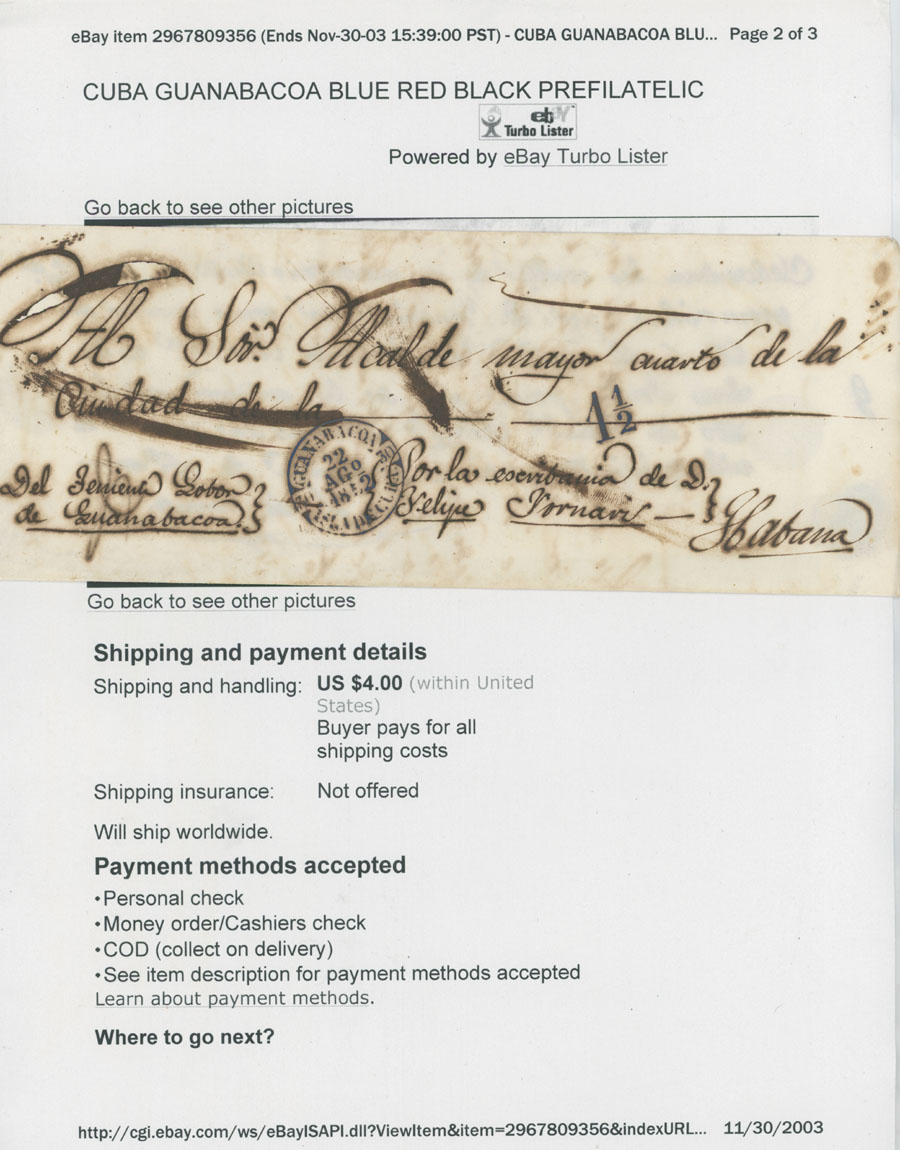 eBay item 2967809356 (Ends Nov-30-03 15:39:00 PST) - CUBA GUANABACOA BLU... Page 2 of 3
CUBA GUANABACOA BLUE RED BLACK PREFILATELIC
ebY
Turbo Lister
Powered by eBay Turbo Lister
Go back to see other pictures
Al Sōr. Alcalde mayor cuarto de la
Ciudad de la
1 1/2
GUANABACOA
22
AGO
1852
ISLA DE CUBA
Del Teniente Gobor
de Guanabacoa.
Por la escribania de D.
Felipe Fornaris
Habana
Go back to see other pictures
Shipping and payment details
Shipping and handling: US $4.00 (within United
States)
Buyer pays for all
shipping costs
Shipping insurance: Not offered
Will ship worldwide.
Payment methods accepted
•Personal check
•Money order/Cashiers check
•COD (collect on delivery)
•See item description for payment methods accepted
Learn about payment methods.
Where to go next?
http://cgi.ebay.com/ws/eBayISAPI.dll?ViewItem&item=2967809356&indexURL... 11/30/2003